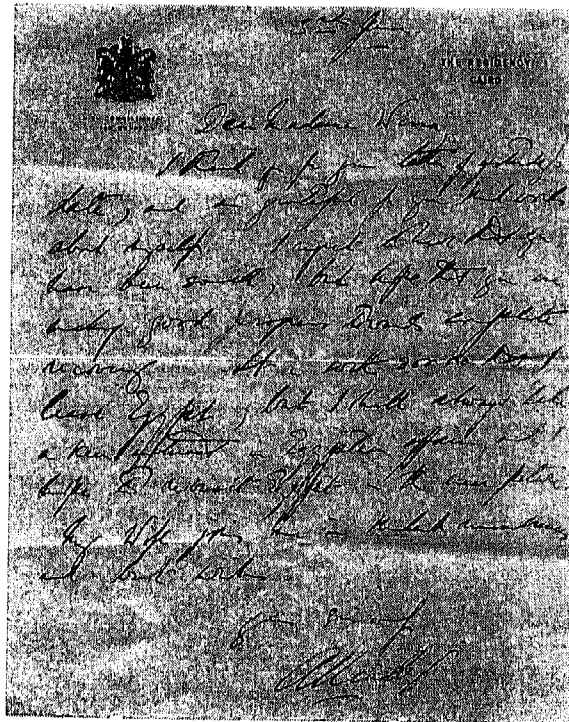 THE RESIDENCY,
CAIRO
Dear Madame
I thank you for your letter of yesterday's
date, and am grateful for your kind words
about myself. I regret to hear that you
have been unwell, but hope that you are
making good progress towards complete
recovery. It is with sorrow that I
leave Egypt, but I shall always take
a keen interest in Egyptian affairs, and I
hope to revisit Egypt in the near future.
My Wife joins me in kindest remembrances
and best